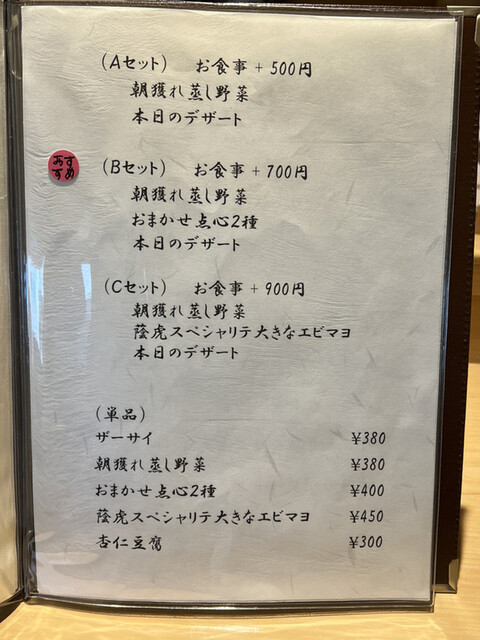 (Aセット) お食事 + 500円
朝獲れ蒸し野菜
本日のデザート
おすすめ
(Bセット) お食事 + 700円
朝獲れ蒸し野菜
おまかせ点心2種
本日のデザート
(Cセット) お食事 + 900円
朝獲れ蒸し野菜
蔭虎スペシャリテ大きなエビマヨ
本日のデザート
(単品)
ザーサイ ¥380
朝獲れ蒸し野菜 ¥380
おまかせ点心2種 ¥400
蔭虎スペシャリテ大きなエビマヨ ¥450
杏仁豆腐 ¥300